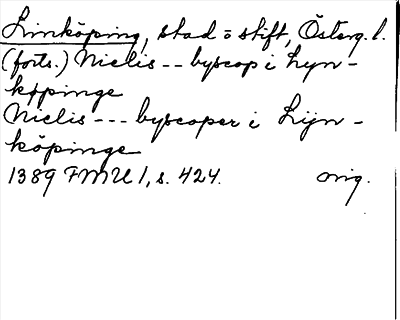 Linköping, stad o stift, Österg. l.
(forts.) Nielis -- byscop i Lyn-
køpinge
Nielis --- byscoper i Lijn-
köpinge
1389 FMU 1, s. 424. orig.